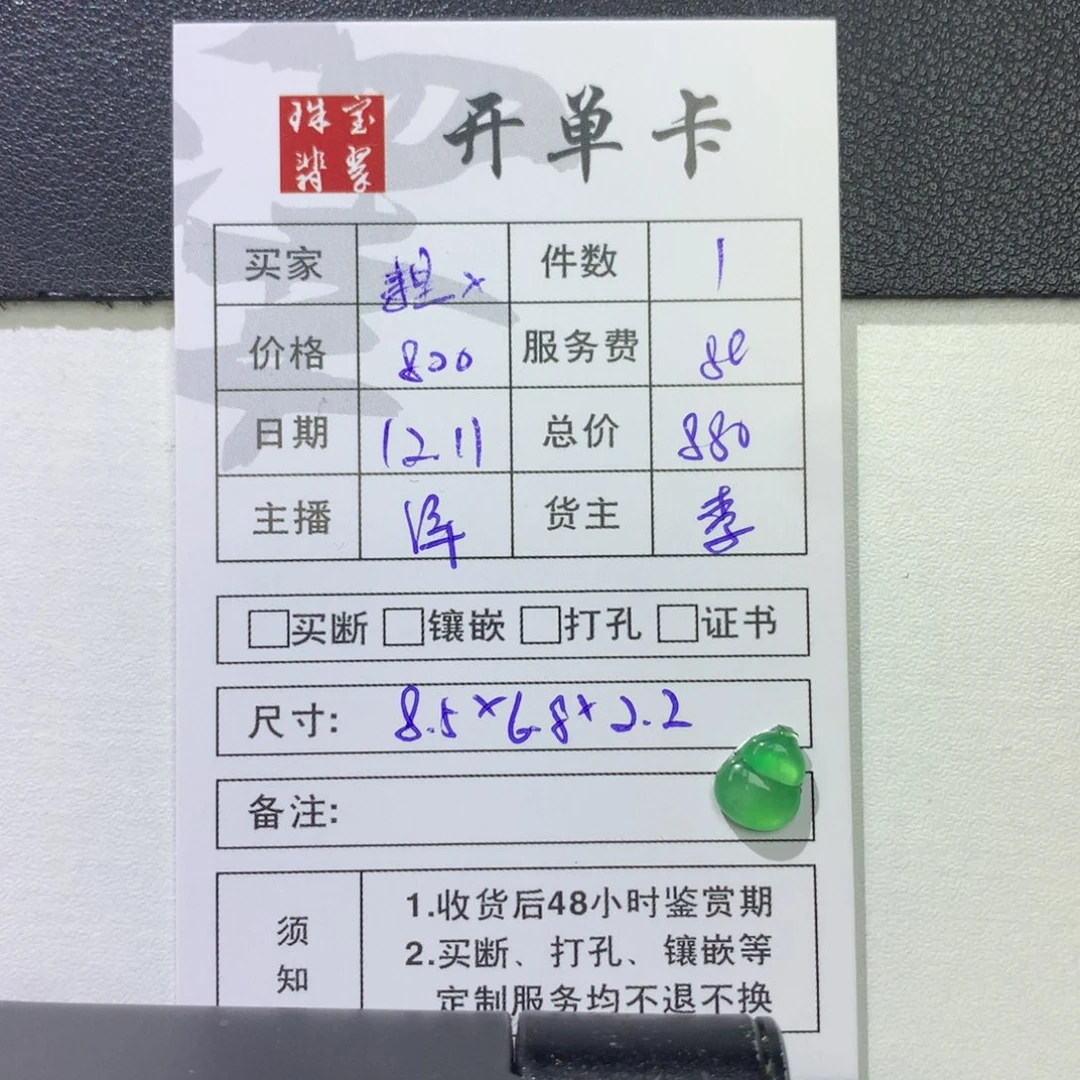 珠宝
翡翠
开单卡
买家 件数 1
价格 800 服务费 80
日期 12.11 总价 880
主播 泽 货主 李
买断 镶嵌 打孔 证书
尺寸: 8.5×6.8×2.2
备注:
须
知
1.收货后48小时鉴赏期
2.买断、打孔、镶嵌等
定制服务均不退不换